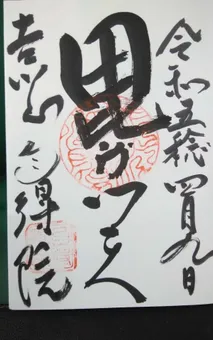 令和五稔四月九日
毘沙門天
吉 山 得院